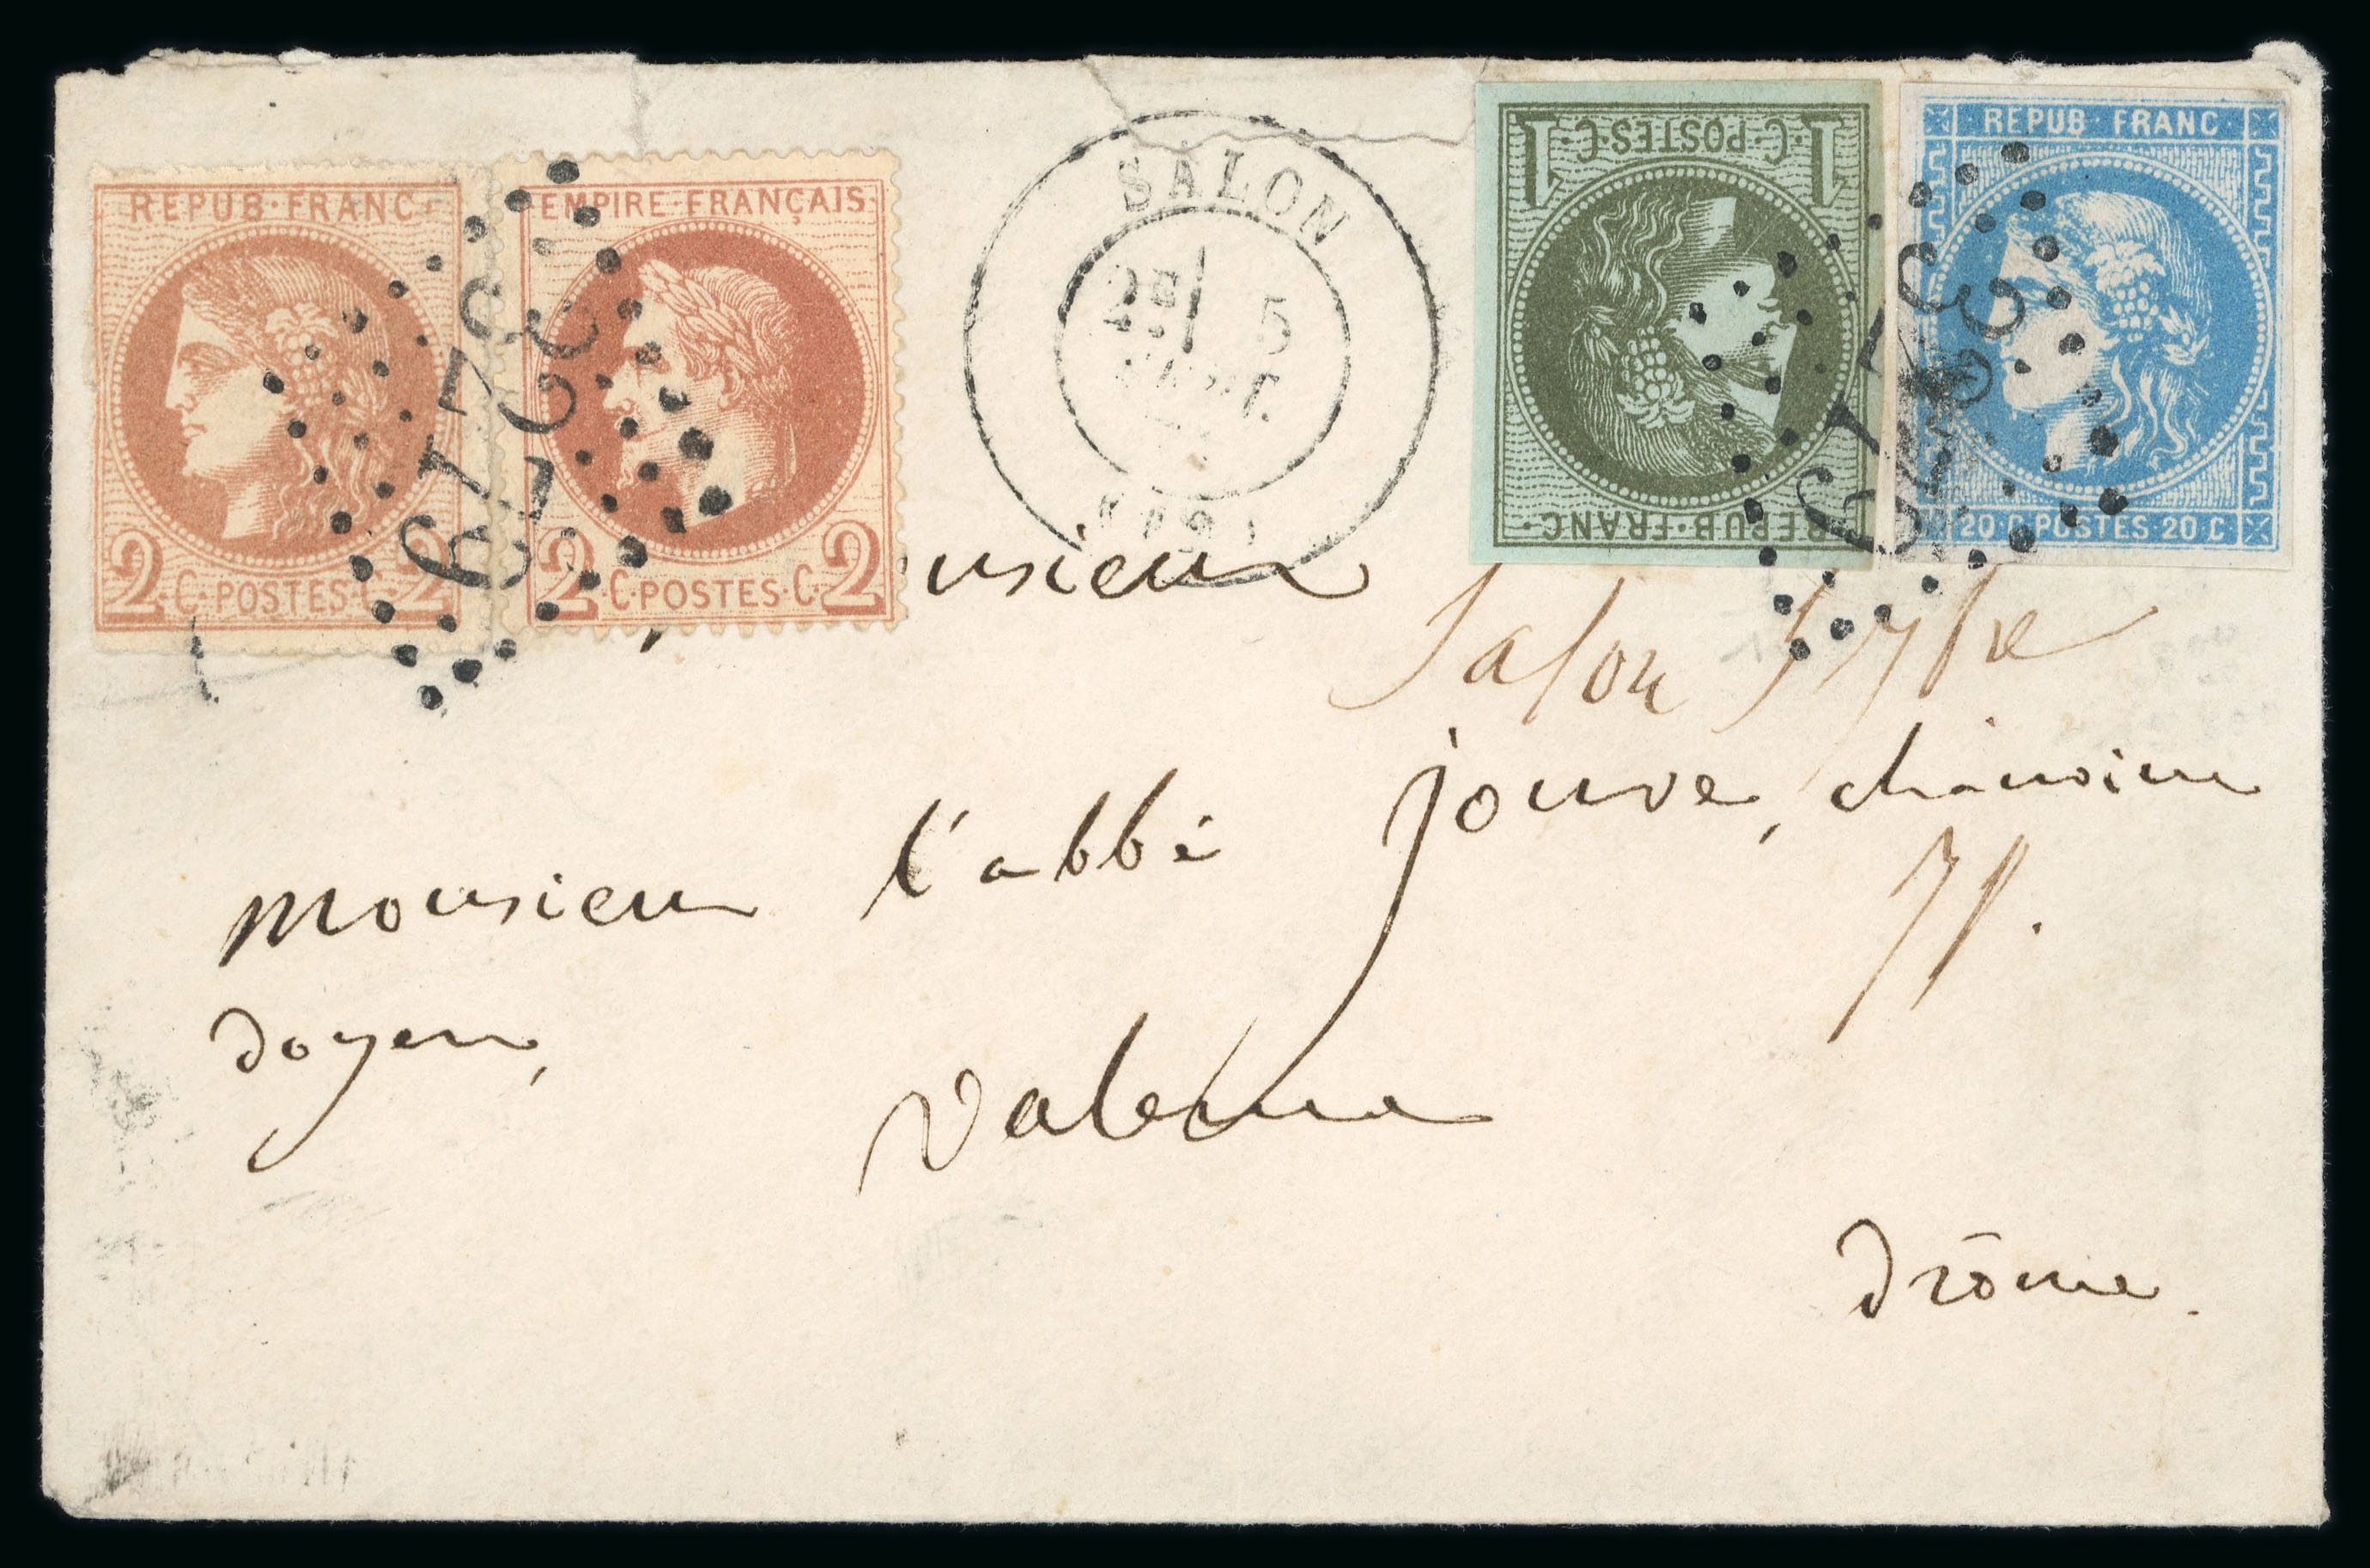 REPUB·FRANC·
2·C·POSTES·C·2
EMPIRE·FRANÇAIS
2·C·POSTES·C·2
3279
SALON
2E 5
SEPT.
1·C·POSTES·C·1
REPUB·FRANC·
REPUB·FRANC
20·C·POSTES·20·C
3279
usieur
Salon 5 7bre
71.
monsieur l'abbé jouve, chanoine
doyen,
valence
drôme.